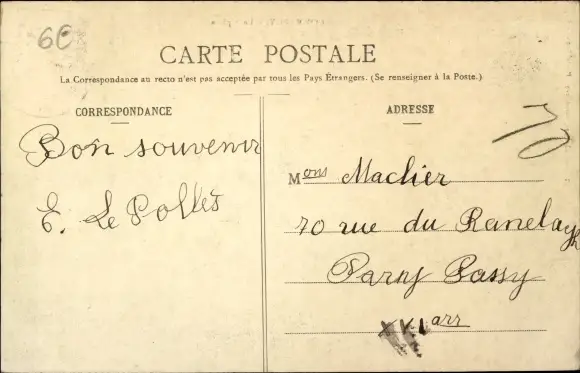 6€
CARTE POSTALE
La Correspondance au recto n'est pas acceptée par tous les Pays Étrangers. (Se renseigner à la Poste.)
CORRESPONDANCE
Bon souvenir
E. Le Polles
ADRESSE
70
Mons Maclier
70 rue du Ranelagh
Parny Passy
XVI arr